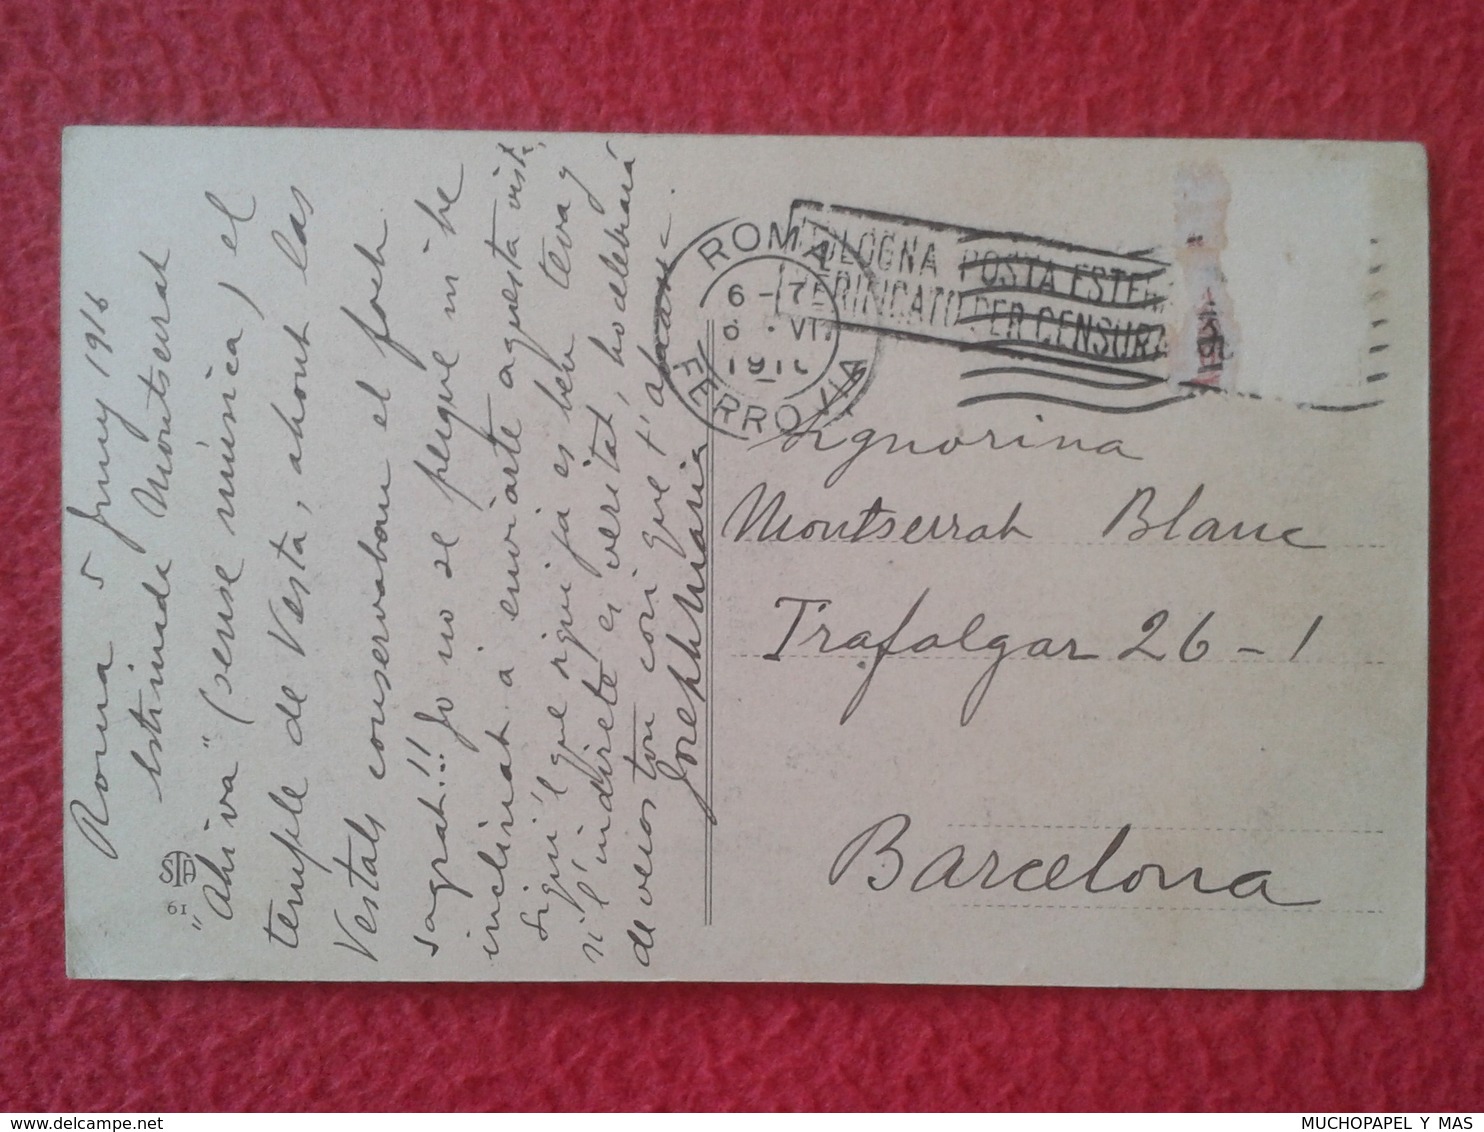 Roma 5 Juny 1916
Estimada Montserrat
"Ahi va" (sense música) el
temple de Vesta, ahont las
Vestals conservaban el foch
sagrat!! Jo no se perque m he
inclinat á enviarte aquesta vista,
sigui 'l que sigui ja es ben teva y
si l' indirete es veritat, ho celebrará
de veras ton cosí que t'
Joseph Maria
STA
61
ROMA
6 - 7
6 . VI.
191
FERROVIA
BOLOGNA POSTA ESTE
VERIFICATO PER CENSURA
Signorina
Montserrat Blanc
Trafalgar 26 - 1
Barcelona
MUCHOPAPEL Y MAS